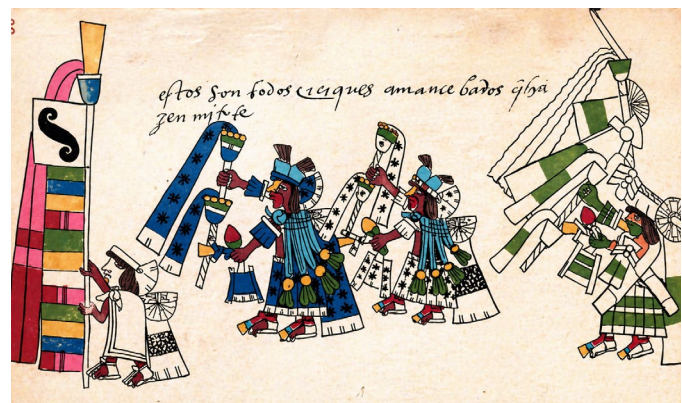 estos son todos caciques amancebados q̃ ha
zen mitote